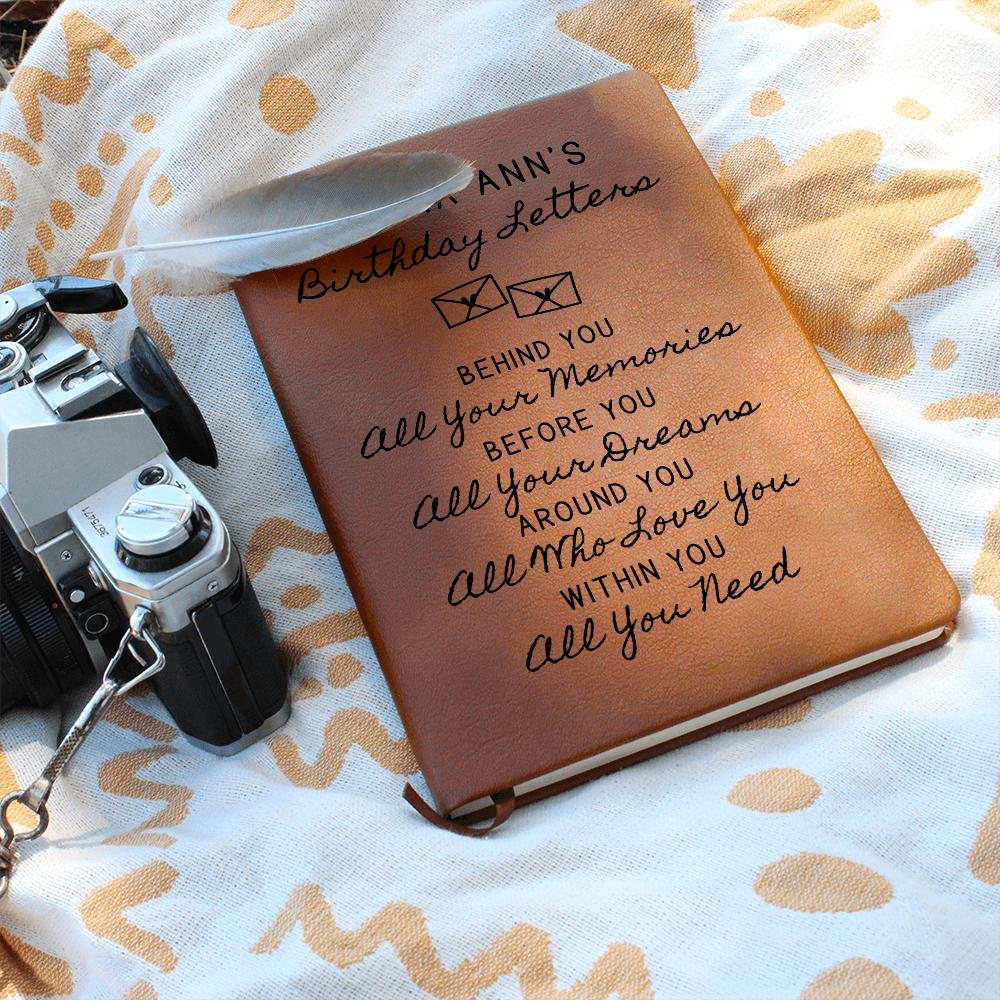 ANN'S
Birthday Letters
BEHIND YOU
All Your Memories
BEFORE YOU
All Your Dreams
AROUND YOU
All Who Love You
WITHIN YOU
All You Need
3675471